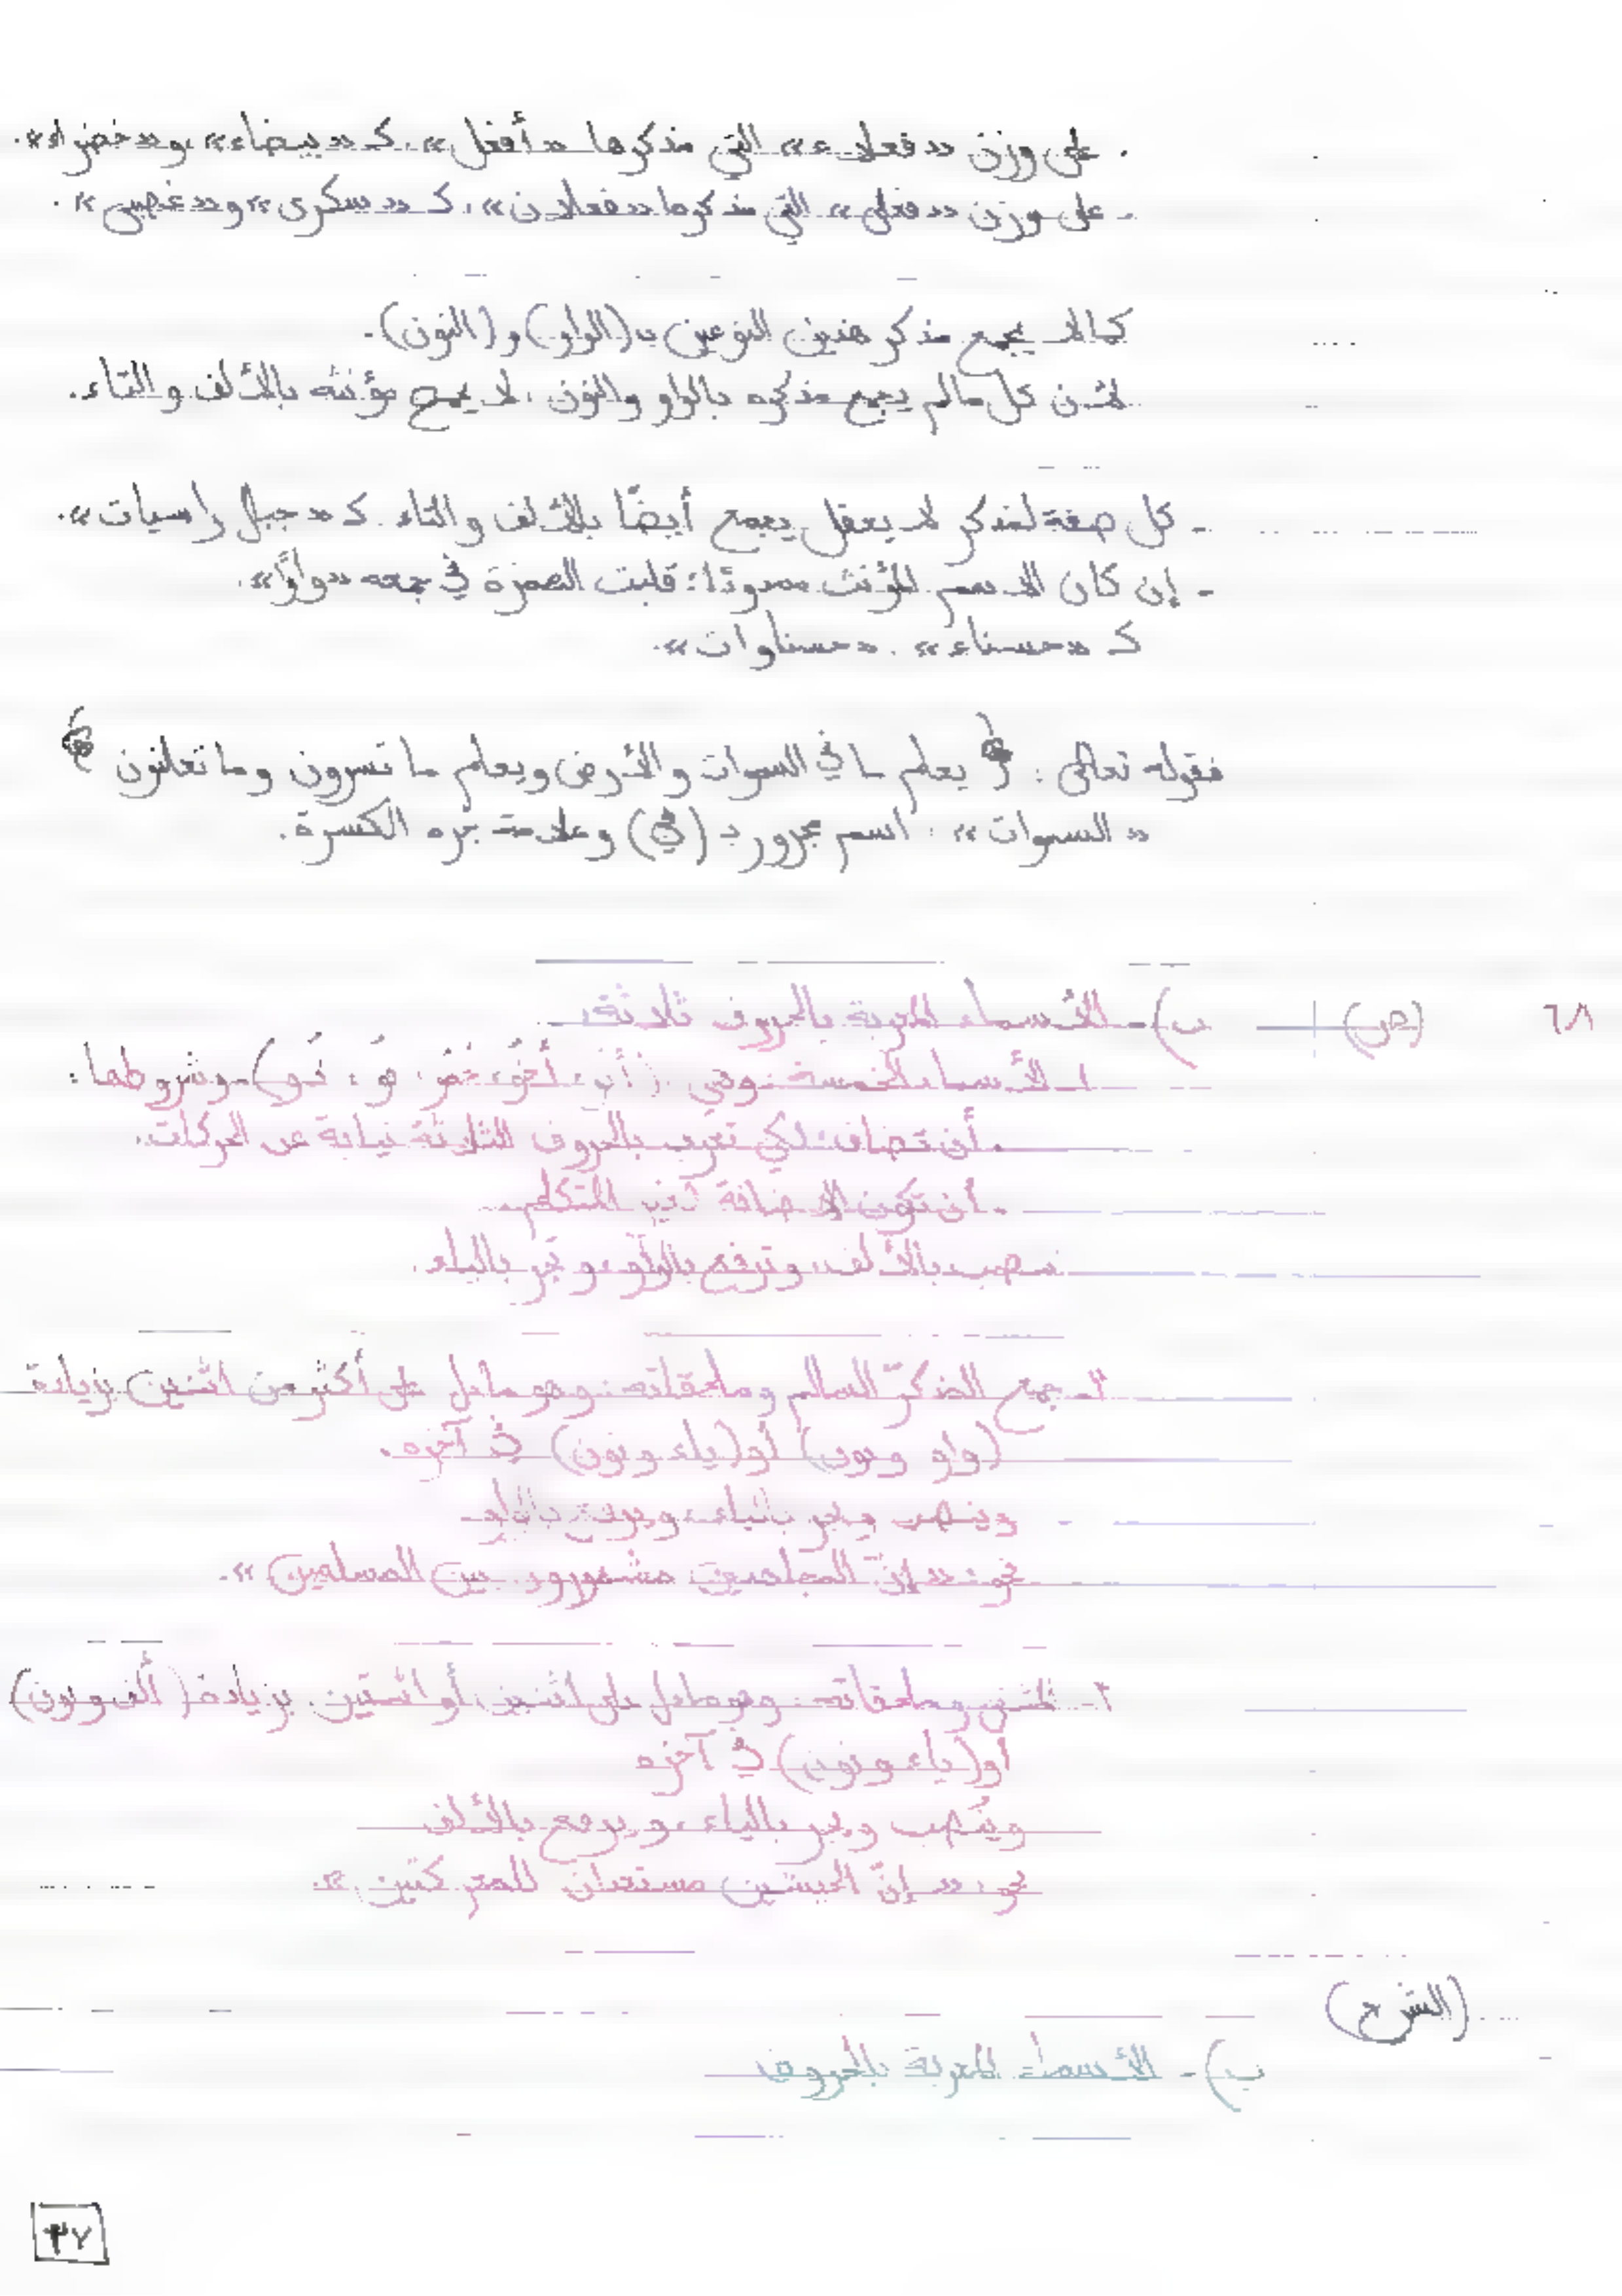 . على وزن «فعلاء» التي مذكرها «أفعل»، كـ «بيضاء» و«خضراء».
- على وزن «فعلى» التي مذكرها «فعلان»، كـ «سكرى» و«غصى».
كما لا يجمع مذكر هذين النوعين بـ (الواو) و (النون).
لأن كل ما لم يجمع مذكره بالواو والنون، لا يجمع مؤنثه بالألف والتاء.
- كل صفة لمذكر لا يعقل يجمع أيضًا بالألف والتاء. كـ «جبل راسيات».
- إن كان الاسم المؤنث ممدودًا: قلبت الهمزة في جمعه «واوًا».
كـ «حسناء». «حسناوات».
فقوله تعالى: ﴿ يعلم ما في السموات والأرض ويعلم ما تسرون وما تعلنون ﴾
«السموات»: اسم مجرور بـ (في) وعلامة جره الكسرة.
٦٨ (ص) ب) - الأسماء المعربة بالحروف ثلاثة:
١- الأسماء الخمسة: وهي: (أبو، أخو، حمو، فو، ذو) وشروطها:
. أن تضاف: لكي تعرب بالحروف الثلاثة نيابة عن الحركات.
. أن تكون الإضافة لغير المتكلم.
تنصب بالألف، وترفع بالواو، وتجر بالياء.
٢- جمع المذكر السالم وملحقاته: وهو ما دل على أكثر من اثنين بزيادة
(واو ونون) أو (ياء ونون) في آخره.
وينصب ويجر بالياء، ويرفع بالواو
نحو: «إنّ المجاهدين مشهورون بين المسلمين».
٣- المثنى وملحقاته: وهو ما دل على اثنين أو اثنتين. بزيادة (ألف ونون)
أو (ياء ونون) في آخره
وينصب ويجر بالياء، ويرفع بالألف
نحو: «إنّ الجيشين مستعدان للمعركتين».
(الشرح)
ب) - الأسماء المعربة بالحروف
٣٧